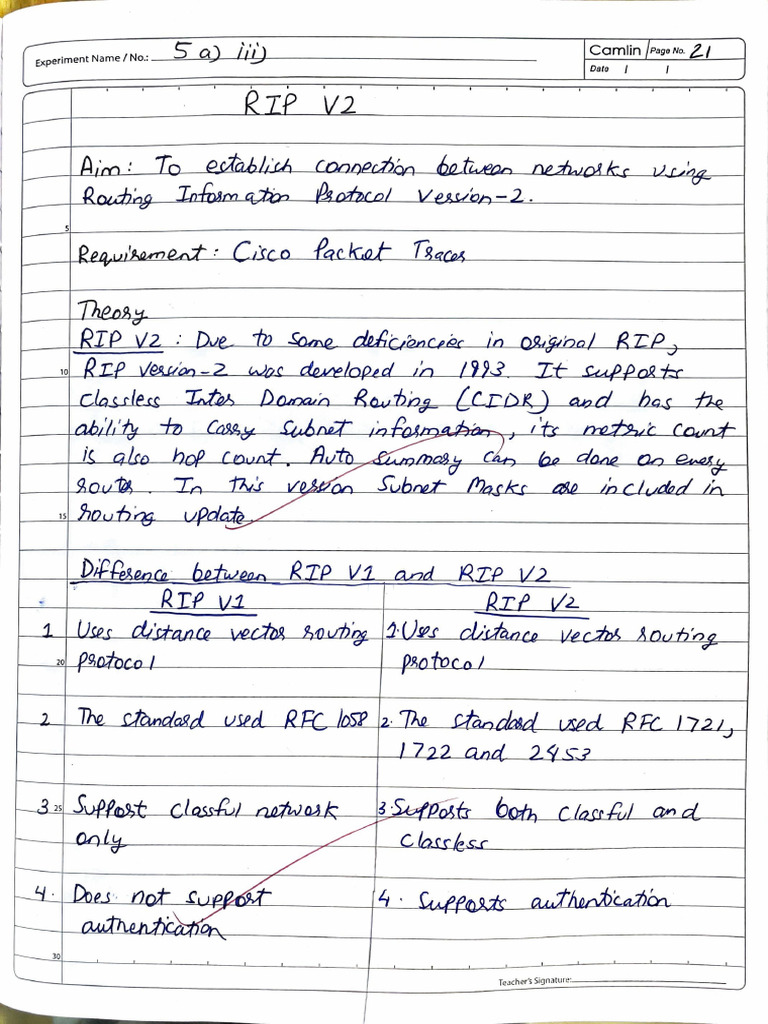 Experiment Name / No.: 5 a) iii)
Camlin Page No. 21
Date / /
RIP V2
Aim: To establish connection between networks using
Routing Information Protocol Version-2.
5
Requirement: Cisco Packet Tracer
Theory
RIP V2 : Due to some deficiencies in original RIP,
10 RIP version-2 was developed in 1993. It supports
classless Inter Domain Routing (CIDR) and has the
ability to carry subnet information, its metric count
is also hop count. Auto summary can be done on every
router. In this version Subnet Masks are included in
15 routing update.
Difference between RIP V1 and RIP V2
RIP V1 RIP V2
1 Uses distance vector routing 1. Uses distance vector routing
20 protocol protocol
2 The standard used RFC 1058 2. The standard used RFC 1721,
1722 and 2453
3 25 Support classful network 3. Supports both classful and
only classless
4. Does not support 4. Supports authentication
authentication
30
Teacher's Signature: